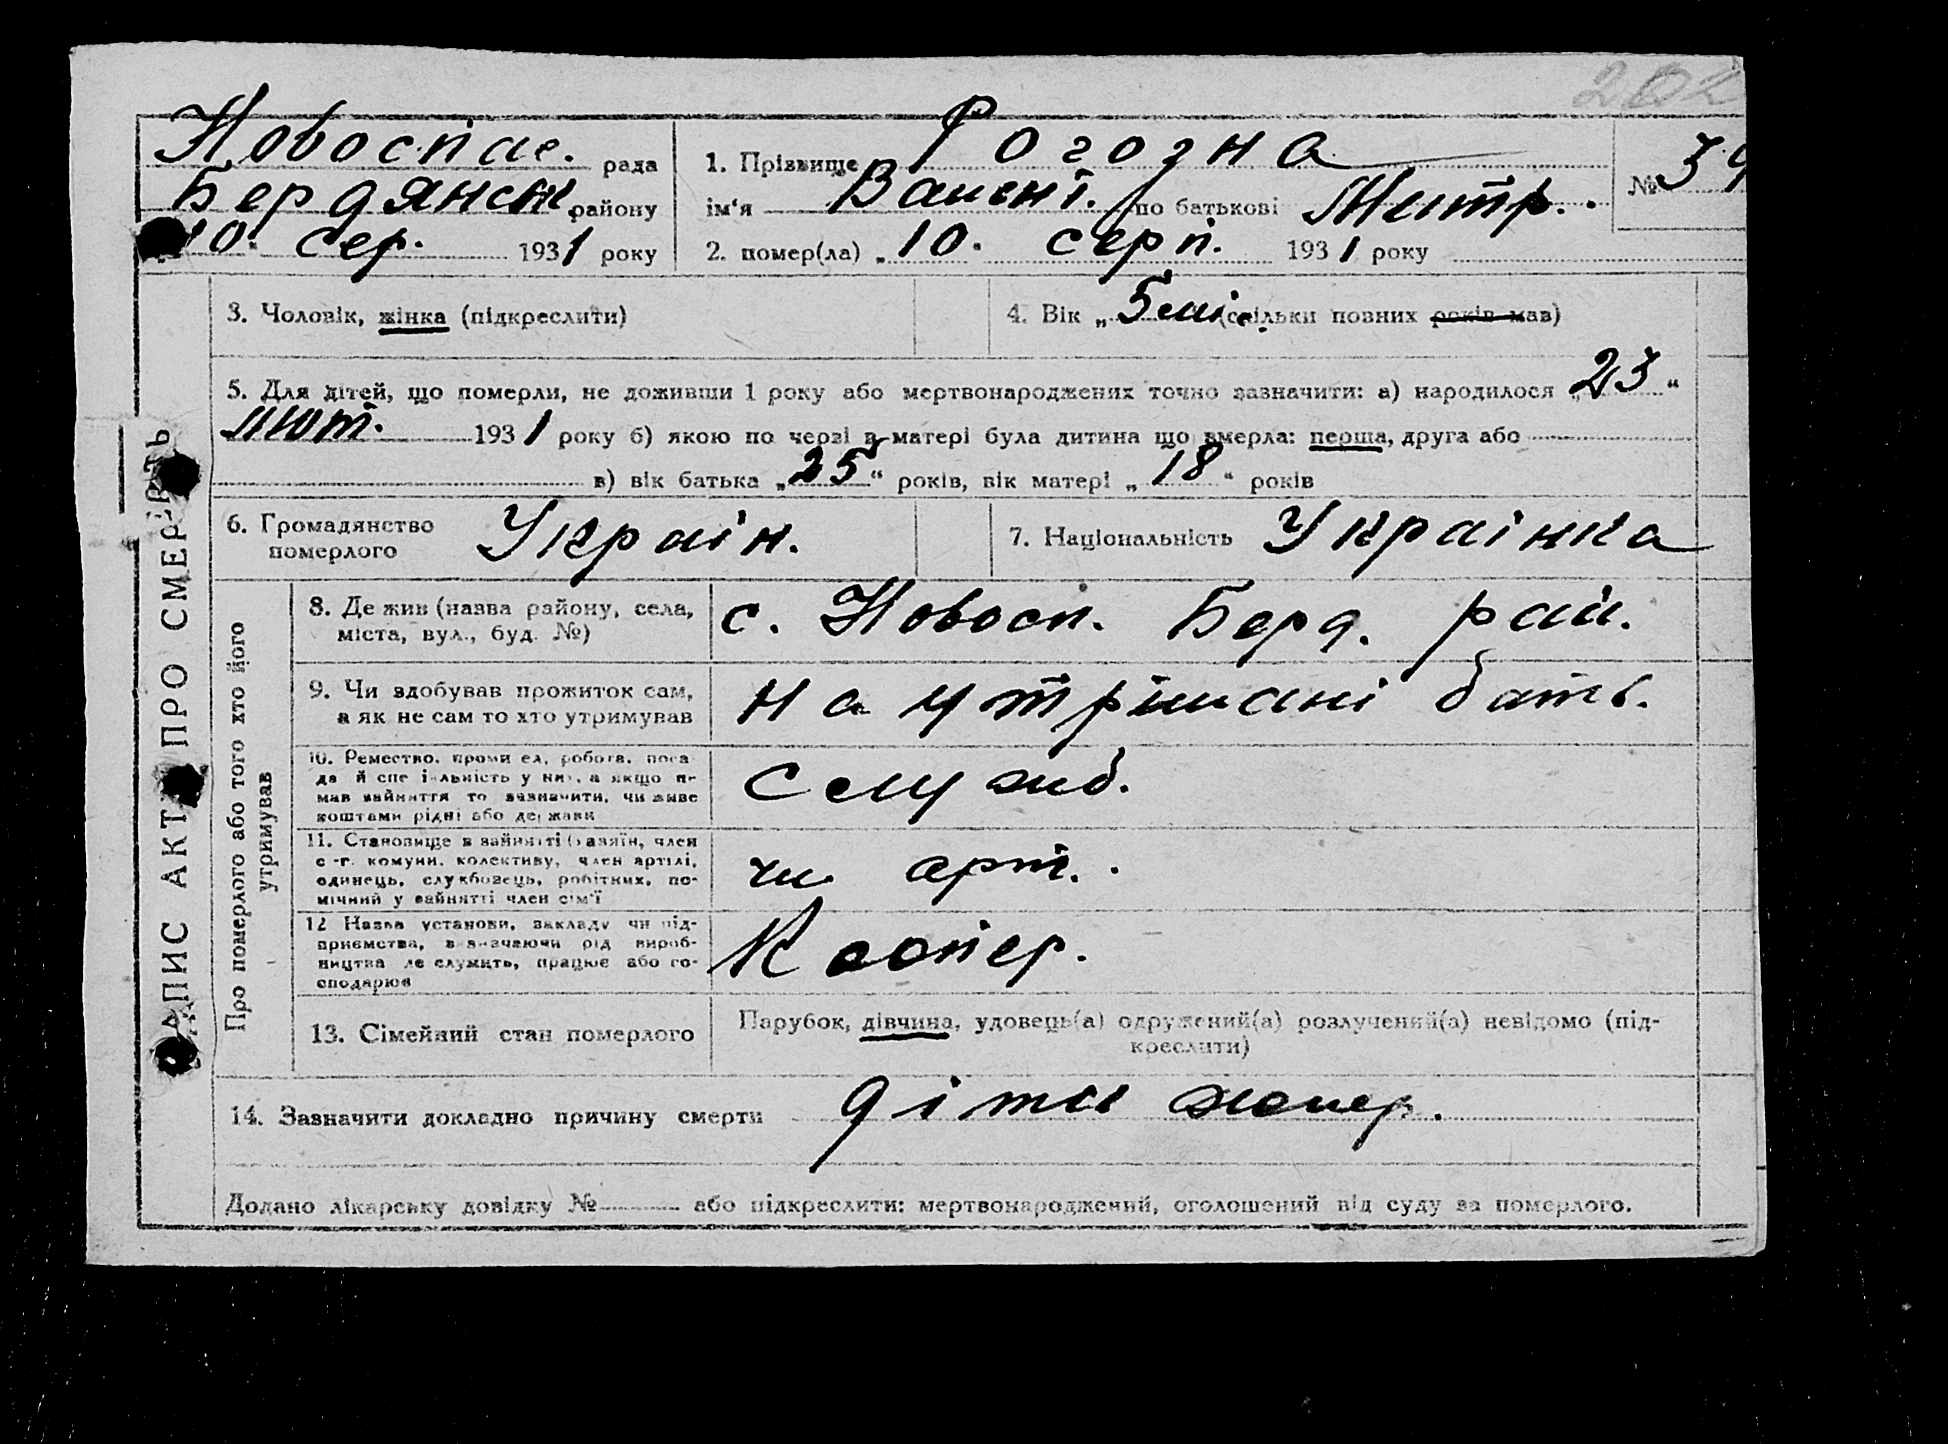 202
Новоспас. рада
Бердянськ району
10. сер. 1931 року
1. Прізвище Рогозна
ім'я Валент. по батькові Митр.
№ 39
2. помер(ла) „ 10. серп. 1931 року
3. Чоловік, жінка (підкреслити)
4. Вік „ 5 мі. (скільки повних років мав)
5. Для дітей, що померли, не доживши 1 року або мертвонароджених точно зазначити: а) народилося „ 23 “
лют. 1931 року б) якою по черзі в матері була дитина що вмерла: перша, друга або
в) вік батька „ 25 “ років, вік матері „ 18 “ років
6. Громадянство
померлого Україн.
7. Національність Українка
ЗАПИС АКТ ПРО СМЕРТЬ
Про померлого або того хто його
утримував
8. Де жив (назва району, села,
міста, вул., буд. №) с. Новосп. Берд. рай.
9. Чи здобував прожиток сам,
а як не сам то хто утримував на утримані бать.
10. Ремество, проми ел, робота, поса-
да й спе іяльність у них, а якщо не
мав зайняття то зазначити, чи живе
коштами рідні або держави служб.
11. Становище в зайнятті (хазяїн, член
с.-г. комуни, колективу, член артілі,
одинець, службовець, робітник, по-
мічний у зайнятті член сім'ї чл арт.
12 Назва установи, закладу чи під-
приємства, визначаючи рід вироб-
ництва де служить, працює або го-
сподарює Коопер.
13. Сімейний стан померлого
Парубок, дівчина, удовець(а) одружений(а) розлучений(а) невідомо (під-
креслити)
14. Зазначити докладно причину смерти дітяч холер.
Додано лікарську довідку № або підкреслити: мертвонароджений, оголошений від суду за померлого.